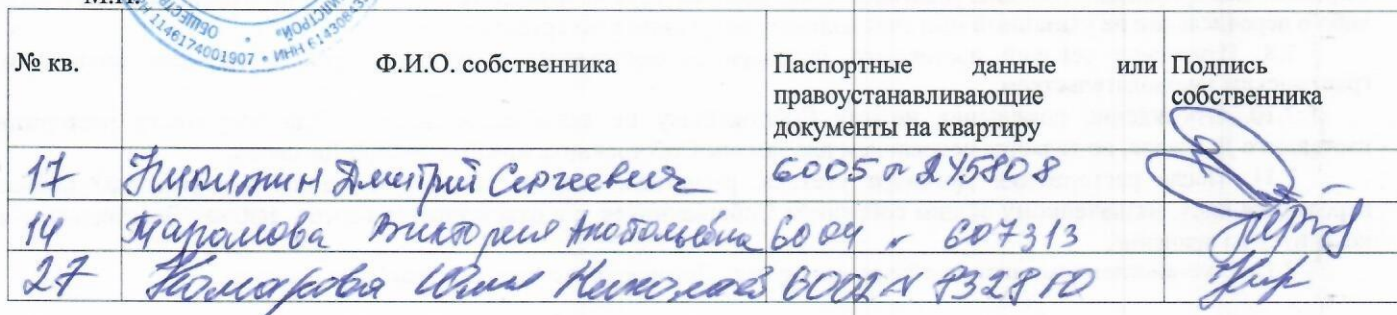 М.П.
ОБЩЕСТВ
1146174001907 • ИНН 61430843
№ кв. Ф.И.О. собственника Паспортные данные или правоустанавливающие документы на квартиру Подпись собственника
17 Никитин Дмитрий Сергеевич 6005 № 245808
14 Виктория Анатольевна 6004 № 607313
27 Комарова Юлия 6002 №